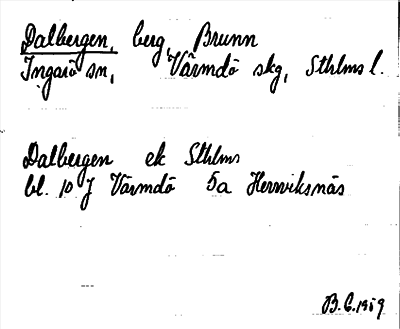 Dalbergen, berg Brunn
Ingarö sn, Värmdö skg, Sthlms l.
Dalbergen ek Sthlms
bl. 10 J Värmdö 5a Herrviksnäs
B.C. 1959